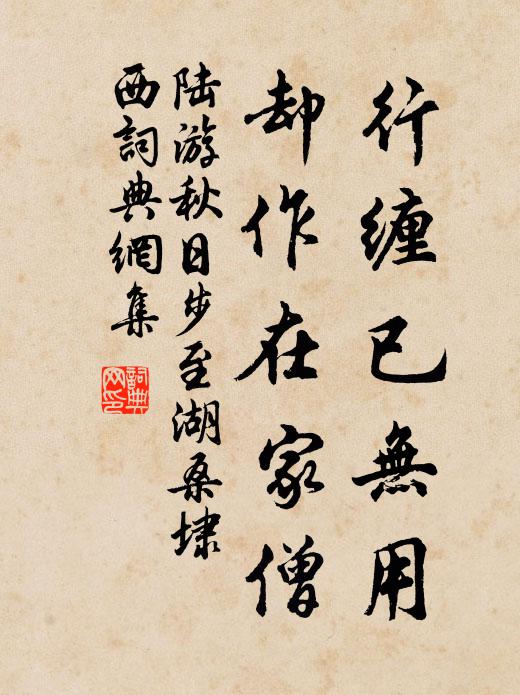 行缠已無用
却作在家僧
陆游秋日步至湖桑埭
西詞典網集
詞典
网印